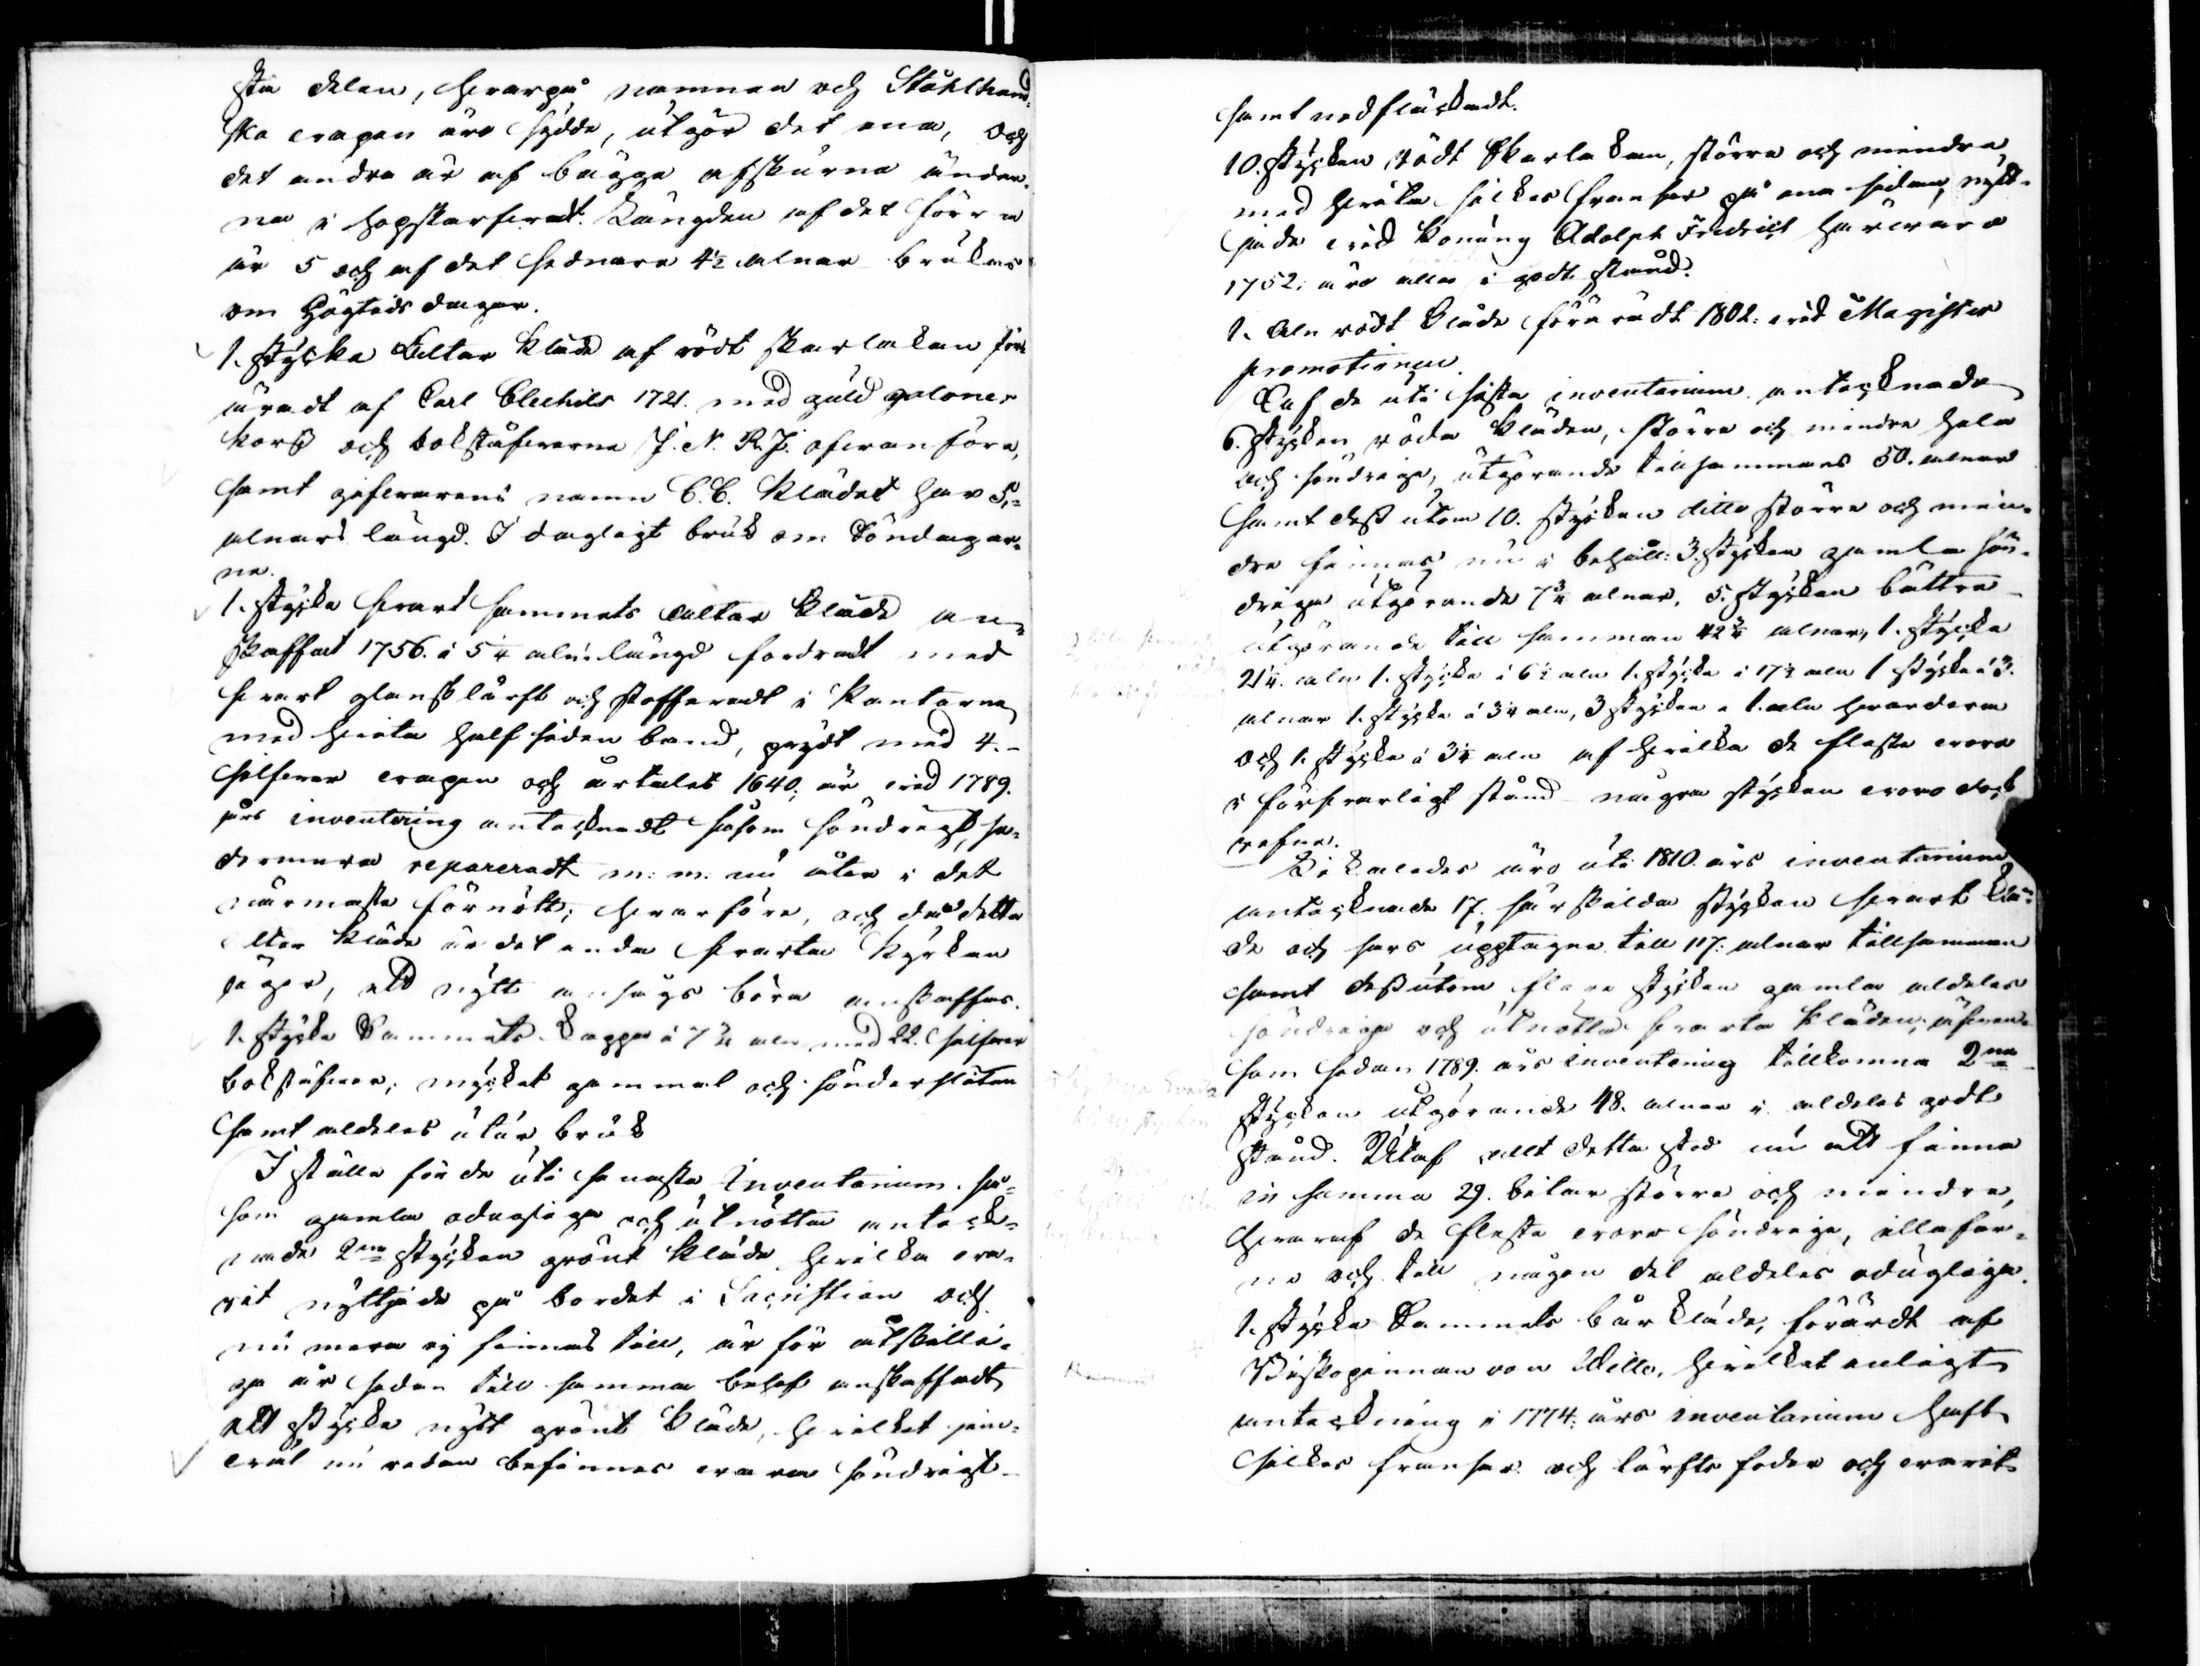 sta delen, hvarpå namnen och Stålhand-
ska vapen äro sydde, utgör det ena, och
det andra är af bägge afskurna ändar-
na i hopskarfvadt. Längden af det förra
är 5 och af det sednare 4½ alnar brukas
om Högtids dagar.
1. stycke Altar kläde af rödt skarlakan för-
äradt af Carl Merthils 1721. med guld galoner
kors och bokstäfverna J. N. R. J. ofvanföre,
samt gifvarens namn C. C. Klädet har 5,
alnars längd. I dagligt bruk om Söndagar-
na.
1. stycke svart sammets altar kläde an-
skaffat 1756. á 5¼ aln: längd fordradt med
svart glansk lärft och stofferadt i kanterna
med hvita half siden band, prydt med 4.
silfver vapen och årtalet 1640; är vid 1789.
års inventering antecknadt såsom söndrigt, se-
dermera repareradt m: m: nu åter i det
närmaste förnött; hvarföre, och då detta
Altar kläde är det enda svarta Kyrkan
äger, ett nytt ansågs böra anskaffas.
1. stycke Sammets kappa á 7¾ aln med 22. silfver
bokstäfver, mycket gammal och sönder sliten
samt aldeles utur bruk
I ställe för de uti senaste Inventarium så-
som gamla odugliga och utnötta anteck-
nade 2ne stycken grönt kläde hvilka va-
rit nyttjade på bordet i Sacristian och
nu mera ej finnas till, är för åtskilli-
ga år sedan till samma behof anskaffadt
ett stycke nytt grönt kläde, hvilket jem-
väl nu redan befinnes vara söndrigt
samt nedfläckadt.
10. stycken rödt skarlakan, större och mindre
med hvita silkes fransar på ena sidan, nytt-
jade vid Konung Adolph Fredrich härvaro
1752. äro alla i godt stånd.
1. Aln rödt kläde föräradt 1802. vid Magister
promotionen.
Af de uti sista inventarium antecknade
6. stycken röda kläden, större och mindre hela
och söndriga, utgörande tillsammans 50. alnar
samt dess utom 10. stycken ditto större och min-
dre finnas nu i behåll: 3. stycken gamla sön-
driga utgörande 7¾ alnar, 5. stycken bättre
utgörande till samman 42¾ alnar, 1. stycke
21¼. aln 1. stycke á 6½ aln 1. stycke á 17½ aln 1 stycke á 3.
alnar 1. stycke á 3¼ aln, 3 stycken a 1. aln hvardera
och 1. stycke á 3¼ aln af hvilka de flesta voro
i försvarligt stånd några stycken voro dock
refne.
Likaledes äro uti 1810. års inventarium
antecknade 17. särskilda stycken svart klä-
de och sars upptagne till 117. alnar tillsamman
samt dessutom flere stycken gamla aldeles
söndriga och utnötta svarta kläden, äfven-
som sedan 1789. års inventering tillkomna 2ne
stycken utgörande 48. alnar i aldeles godt
stånd. Utaf allt detta stod nu att finna
in summa 29. bitar större och mindre,
hvaraf de flesta voro söndriga, illa far-
ne och till någon del aldeles odugliga.
1. stycke Sammets bårkläde, förärdt af
Biskopinnan von Wille, hvilket enligt
anteckning i 1774. års inventarium haft
silkes fransar och lärfts foder och varit